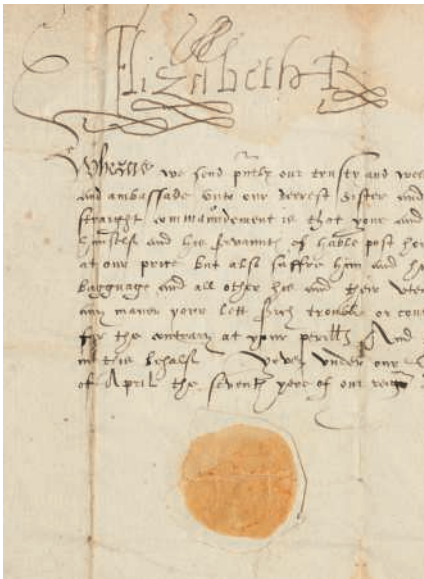 Elizabeth R
Wheras we send pntly our trusty and we
and ambassade unto our derest Sister and
straight commaundement is that you and
himself and his servaunts of hable post hor
at our price But also suffre him and h
baggage and all other his and their Ute
any maner your lett Such trouble or con
for the contrary at your perills And
in this behalf Yeven under our
of April the seventh yere of our reign